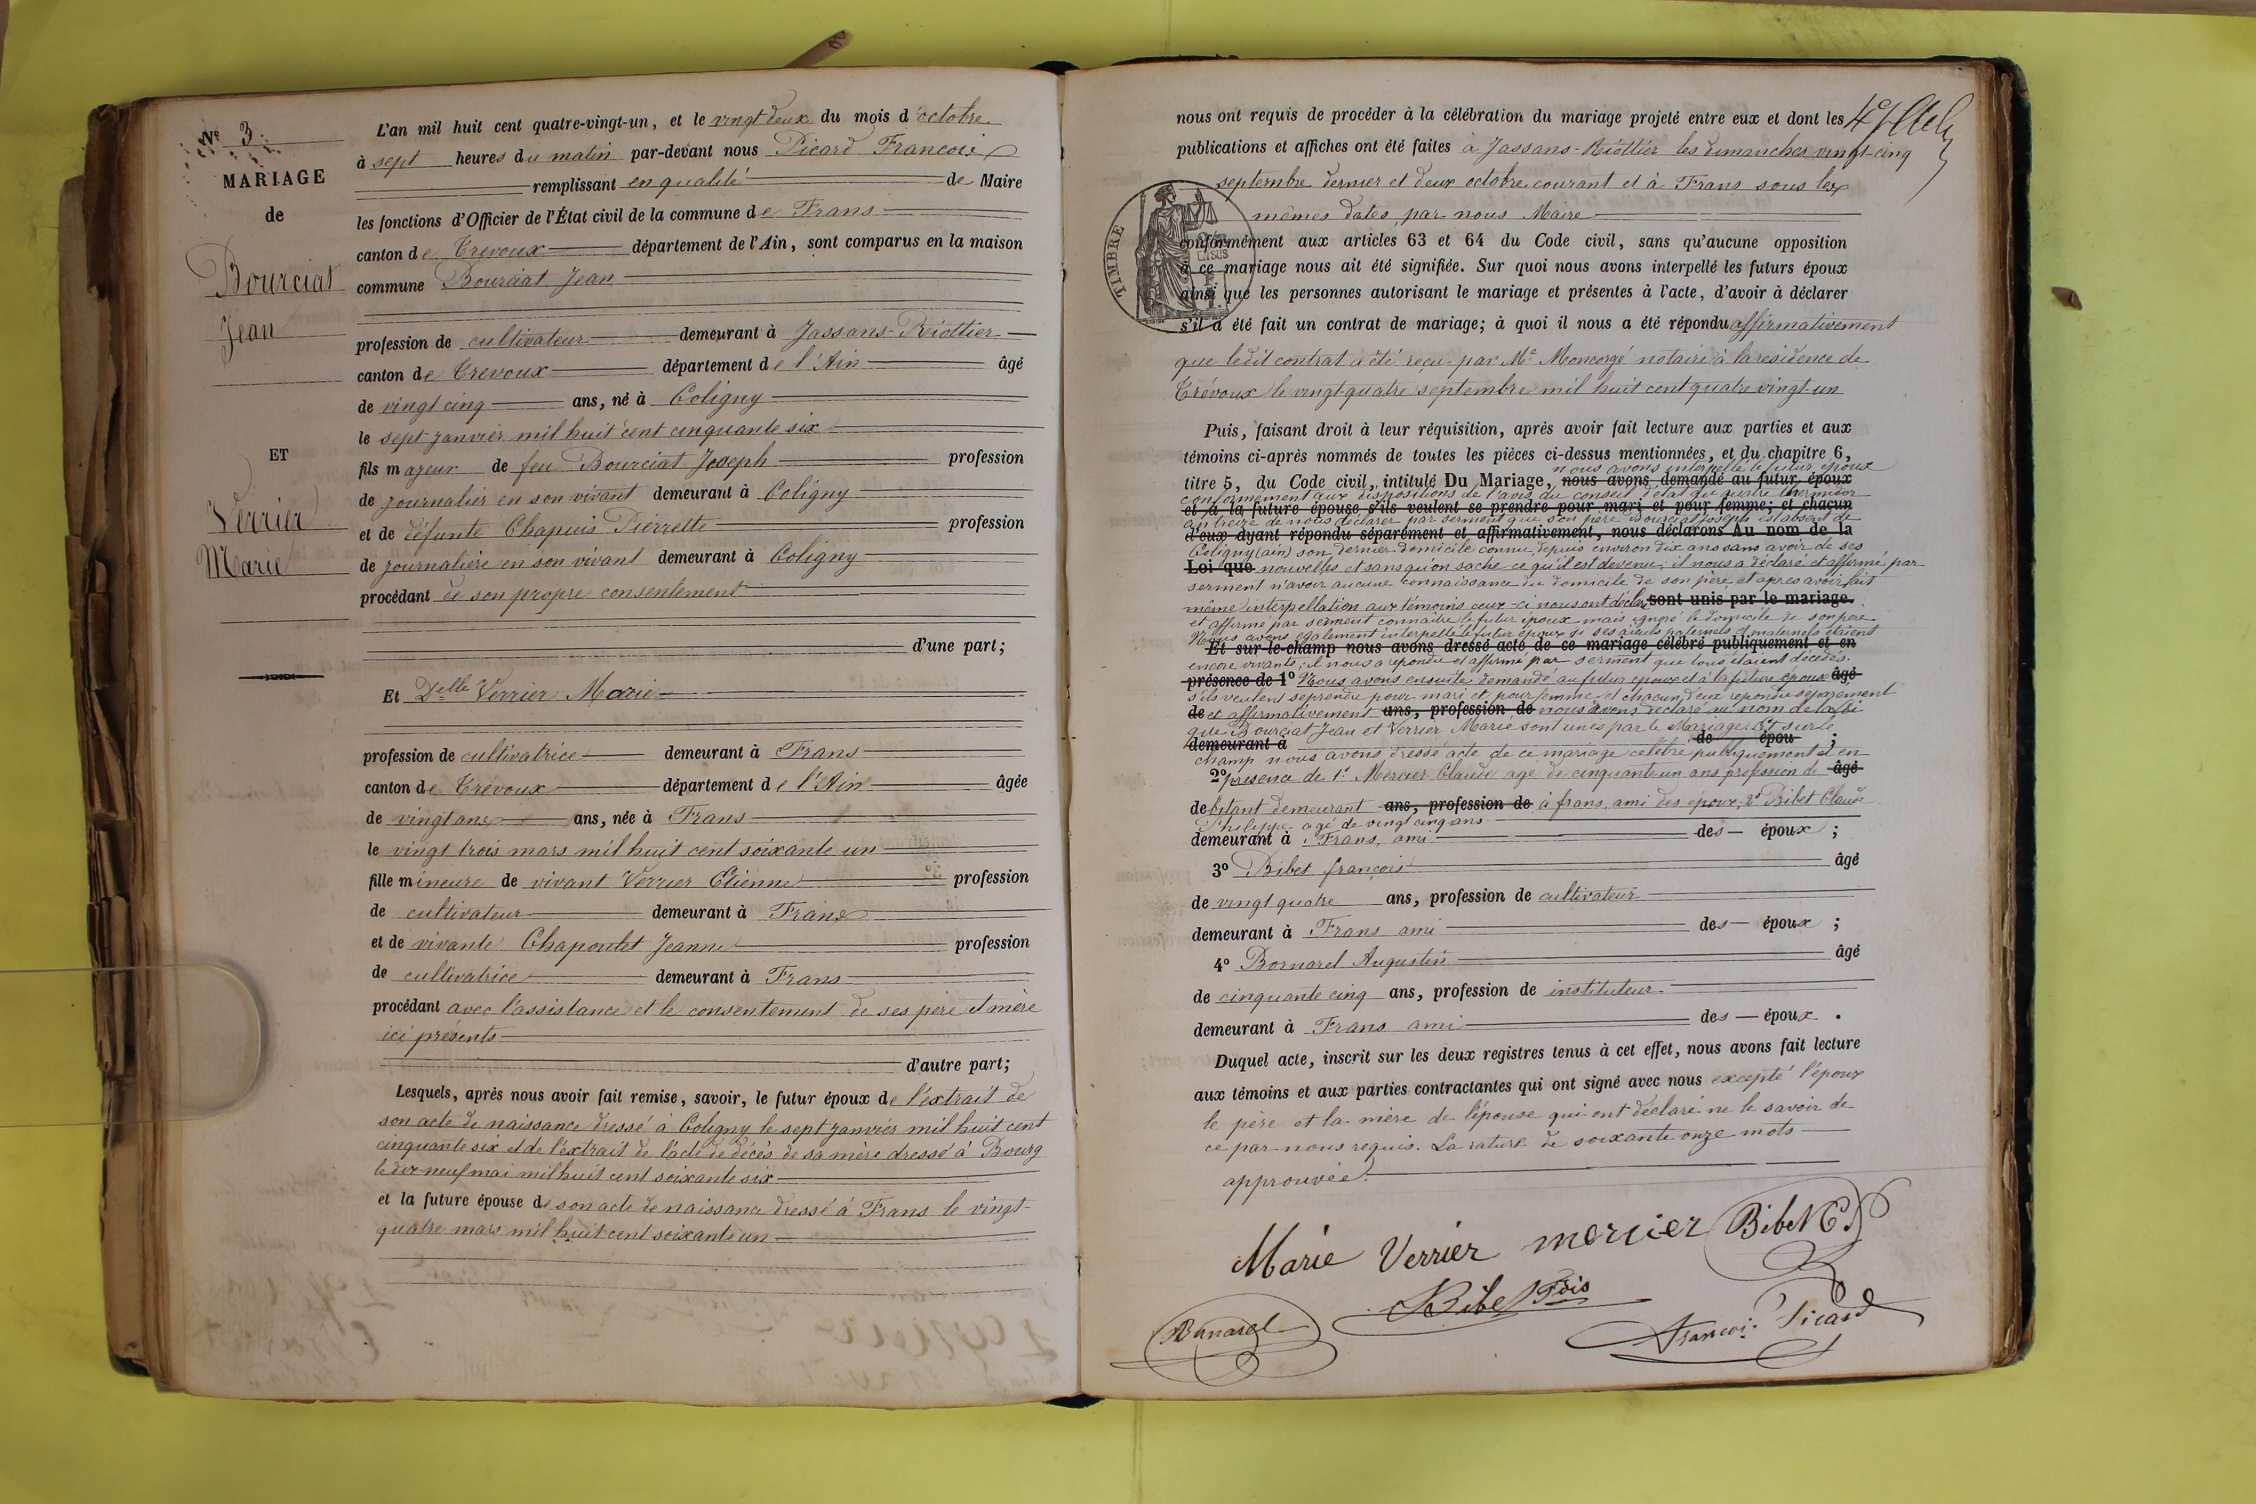 Nº 3.
MARIAGE
de
Bourciat
Jean
ET
Verrier
Marie
L'an mil huit cent quatre-vingt-un, et le vingt deux du mois d'octobre
à sept heures du matin par-devant nous Picard François
remplissant en qualité de Maire
les fonctions d'Officier de l'État civil de la commune de Frans
canton de Trévoux département de l'Ain, sont comparus en la maison
commune Bourciat Jean
profession de cultivateur demeurant à Jassans-Riottier
canton de Trevoux département de l'Ain âgé
de vingt cinq ans, né à Coligny
le sept janvier mil huit cent cinquante six
fils majeur de feu Bourciat Joseph profession
de journalier en son vivant demeurant à Coligny
et de défunte Chapuis Pierrette profession
de journalière en son vivant demeurant à Coligny
procédant de son propre consentement
d'une part;
Et Delle Verrier Marie
profession de cultivatrice demeurant à Frans
canton de Trévoux département de l'Ain âgée
de vingt ans, née à Frans
le vingt trois mars mil huit cent soixante un
fille mineure de vivant Verrier Etienne profession
de cultivateur demeurant à Frans
et de vivante Chapoutot Jeanne profession
de cultivatrice demeurant à Frans
procédant avec l'assistance et le consentement de ses père et mère
ici présents
d'autre part;
Lesquels, après nous avoir fait remise, savoir, le futur époux de l'extrait de
son acte de naissance dressé à Coligny le sept janvier mil huit cent
cinquante six et de l'extrait de l'acte de décès de sa mère dressé à Bourg
le dix-neuf mai mil huit cent soixante six
et la future épouse de son acte de naissance dressé à Frans le vingt-
quatre mars mil huit cent soixante un
nous ont requis de procéder à la célébration du mariage projeté entre eux et dont les
publications et affiches ont été faites à Jassans-Riottier les dimanches vingt-cinq
septembre dernier et deux octobre courant et à Frans sous les
mêmes dates, par nous Maire
TIMBRE
conformément aux articles 63 et 64 du Code civil, sans qu'aucune opposition
à ce mariage nous ait été signifiée. Sur quoi nous avons interpellé les futurs époux
ainsi que les personnes autorisant le mariage et présentes à l'acte, d'avoir à déclarer
s'il a été fait un contrat de mariage; à quoi il nous a été répondu affirmativement
que ledit contrat a été reçu par Me Moncorgé notaire à la résidence de
Trévoux le vingt quatre septembre mil huit cent quatre vingt-un
Puis, faisant droit à leur réquisition, après avoir fait lecture aux parties et aux
témoins ci-après nommés de toutes les pièces ci-dessus mentionnées, et du chapitre 6,
nous avons interpellé le futur époux
titre 5, du Code civil, intitulé Du Mariage, nous avons demandé au futur époux
conformement aux dispositions de l'avis du conseil d'état du quatre thermidor
et à la future épouse s'ils veulent se prendre pour mari et pour femme; et chacun
an treize de nous déclarer par serment que son père Bourciat Joseph est absent de
d'eux ayant répondu séparément et affirmativement, nous déclarons Au nom de la
Coligny (ain) son dernier domicile connu, depuis environ dix ans sans avoir de ses
Loi que nouvelles et sans qu'on sache ce qu'il est devenu; il nous a déclaré et affirmé par
serment n'avoir aucune connaissance du domicile de son père et après avoir fait
même interpellation aux témoins ceux-ci nous ont déclaré sont unis par le mariage.
et affirmé par serment connaître le futur époux mais ignoré le domicile de son père
Nous avons également interpellé le futur époux si ses aïeuls paternels et maternels étaient
Et sur-le-champ nous avons dressé acte de ce mariage célébré publiquement et en
encore vivants; il nous a répondu et affirmé par serment que tous étaient décédés.
présence de 1º Nous avons ensuite demandé au futur époux et à la future épouse âgé
s'ils veulent se prendre pour mari et pour femme et chacun d'eux répondu séparément
de et affirmativement ans, profession de nous avons déclaré au nom de la loi
que Bourciat Jean et Verrier Marie sont unis par le Mariage. Et sur le
demeurant à de épou ;
champ nous avons dressé acte de ce mariage célébré publiquement et en
2º présence de 1º Mercier Claude agé de cinquante un ans profession de âgé
de bitant demeurant ans, profession de à frans, ami des époux, 2º Bibet Claude
Philippe agé de vingt cinq ans
demeurant à Frans, ami des époux ;
3º Bibet françois âgé
de vingt quatre ans, profession de cultivateur
demeurant à Frans ami des époux ;
4º Bornarel Augustin âgé
de cinquante cinq ans, profession de instituteur
demeurant à Frans ami des époux .
Duquel acte, inscrit sur les deux registres tenus à cet effet, nous avons fait lecture
aux témoins et aux parties contractantes qui ont signé avec nous excepté l'époux
le père et la mère de l'épouse qui ont déclaré ne le savoir de
ce par nous requis. La rature de soixante onze mots
approuvée
Marie Verrier mercier Bibet C. P
Bibet Fois
Bornarel
François Picard